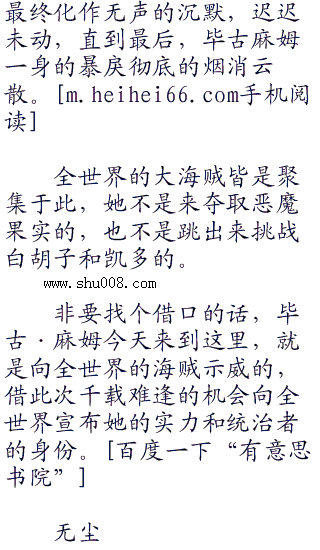 最终化作无声的沉默，迟迟
未动，直到最后，毕古麻姆
一身的暴戾彻底的烟消云
散。[m.heihei66.com手机阅
读]
全世界的大海贼皆是聚
集于此，她不是来夺取恶魔
果实的，也不是跳出来挑战
白胡子和凯多的。
www.shu008.com
非要找个借口的话，毕
古·麻姆今天来到这里，就
是向全世界的海贼示威的，
借此次千载难逢的机会向全
世界宣布她的实力和统治者
的身份。[百度一下“有意思
书院”]
无尘